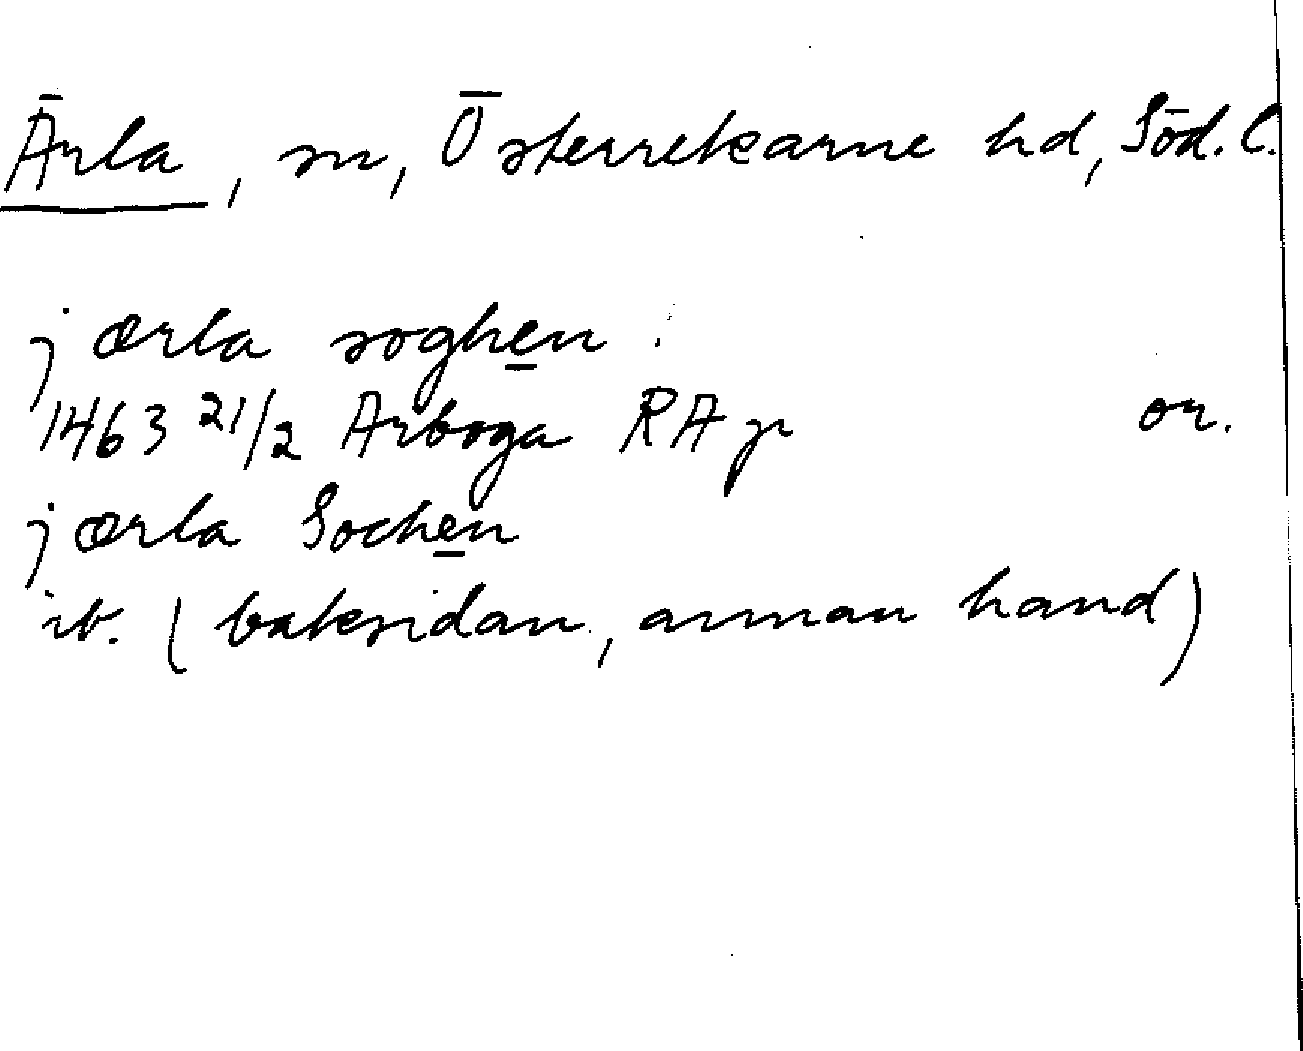 Ärla, sn, Österrekarne hd, Söd. l.
j ærla soghen
1463 21/2 Arboga RA p or.
j ærla Sochen
ib. (baksidan, annan hand)